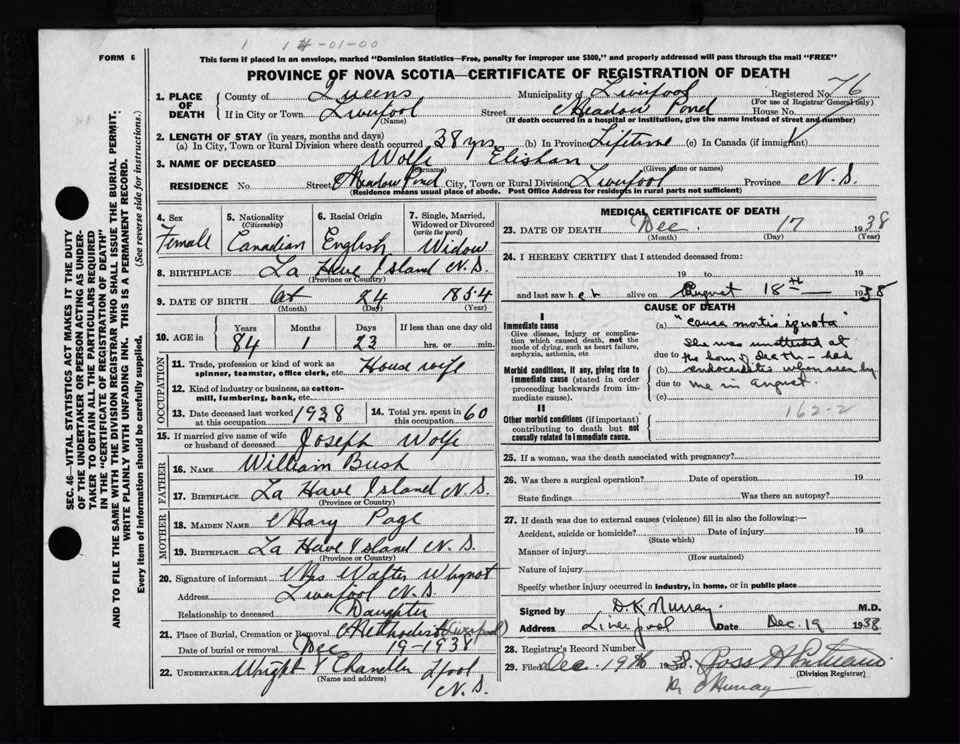 1 14-01-00
FORM 6
This form if placed in an envelope, marked "Dominion Statistics—Free, penalty for improper use $300," and properly addressed will pass through the mail "FREE"
PROVINCE OF NOVA SCOTIA—CERTIFICATE OF REGISTRATION OF DEATH
SEC. 46—VITAL STATISTICS ACT MAKES IT THE DUTY OF THE UNDERTAKER OR PERSON ACTING AS UNDERTAKER TO OBTAIN ALL THE PARTICULARS REQUIRED IN THE "CERTIFICATE OF REGISTRATION OF DEATH" AND TO FILE THE SAME WITH THE DIVISION REGISTRAR WHO SHALL ISSUE THE BURIAL PERMIT.
WRITE PLAINLY WITH UNFADING INK. THIS IS A PERMANENT RECORD.
Every item of information should be carefully supplied. (See reverse side for instructions.)
1. PLACE OF DEATH County of Queens Municipality of Liverpool Registered No. 76
(For use of Registrar General only)
If in City or Town Liverpool Street Meadow Pond House No.
(Name) (If death occurred in a hospital or institution, give the name instead of street and number)
2. LENGTH OF STAY (in years, months and days)
(a) In City, Town or Rural Division where death occurred 38 yrs (b) In Province Lifetime (c) In Canada (if immigrant)
3. NAME OF DECEASED Wolfe Elishan
(Surname) (Given name or names)
RESIDENCE No. Street Meadow Pond City, Town or Rural Division Liverpool Province N.S.
(Residence means usual place of abode. Post Office Address for residents in rural parts not sufficient)
4. Sex Female
5. Nationality (Citizenship) Canadian
6. Racial Origin English
7. Single, Married, Widowed or Divorced (write the word) Widow
8. BIRTHPLACE La Have Island N.S.
(Province or Country)
9. DATE OF BIRTH Oct 24 1854
(Month) (Day) (Year)
10. AGE in Years Months Days If less than one day old
84 1 23 hrs. or min.
OCCUPATION
11. Trade, profession or kind of work as spinner, teamster, office clerk, etc. House wife
12. Kind of industry or business, as cotton-mill, lumbering, bank, etc.
13. Date deceased last worked at this occupation 1938
14. Total yrs. spent in this occupation 60
15. If married give name of wife or husband of deceased Joseph Wolfe
FATHER
16. NAME William Bush
17. BIRTHPLACE La Have Island N.S.
(Province or Country)
MOTHER
18. MAIDEN NAME Mary Page
19. BIRTHPLACE La Have Island N.S.
(Province or Country)
20. Signature of informant Mrs Walter Whynot
Address Liverpool N.S.
Relationship to deceased Daughter
21. Place of Burial, Cremation or Removal Methodist (Liverpool)
Date of burial or removal Dec 19-1938
22. UNDERTAKER Wright & Chandler L'pool N.S.
(Name and address)
MEDICAL CERTIFICATE OF DEATH
23. DATE OF DEATH Dec. 17 1938
(Month) (Day) (Year)
24. I HEREBY CERTIFY that I attended deceased from:
19 to 19
and last saw her alive on August 18th 1938
CAUSE OF DEATH
I
Immediate cause
Give disease, injury or complication which caused death, not the mode of dying, such as heart failure, asphyxia, asthenia, etc
Morbid conditions, if any, giving rise to immediate cause (stated in order proceeding backwards from immediate cause).
II
Other morbid conditions (if important) contributing to death but not causally related to immediate cause.
(a) "causa mortis ignota"
She was unattended at
due to the hour of death - had
(b) endocarditis when seen by
due to me in August.
(c)
162-2
25. If a woman, was the death associated with pregnancy?
26. Was there a surgical operation? Date of operation 19
State findings Was there an autopsy?
27. If death was due to external causes (violence) fill in also the following:—
Accident, suicide or homicide? Date of injury 19
(State which)
Manner of injury
(How sustained)
Nature of injury
Specify whether injury occurred in industry, in home, or in public place
Signed by D.K. Murray. M.D.
Address Liverpool Date Dec. 19 1938
28. Registrar's Record Number
29. Filed Dec. 19th 1938.
(Division Registrar)
Murray